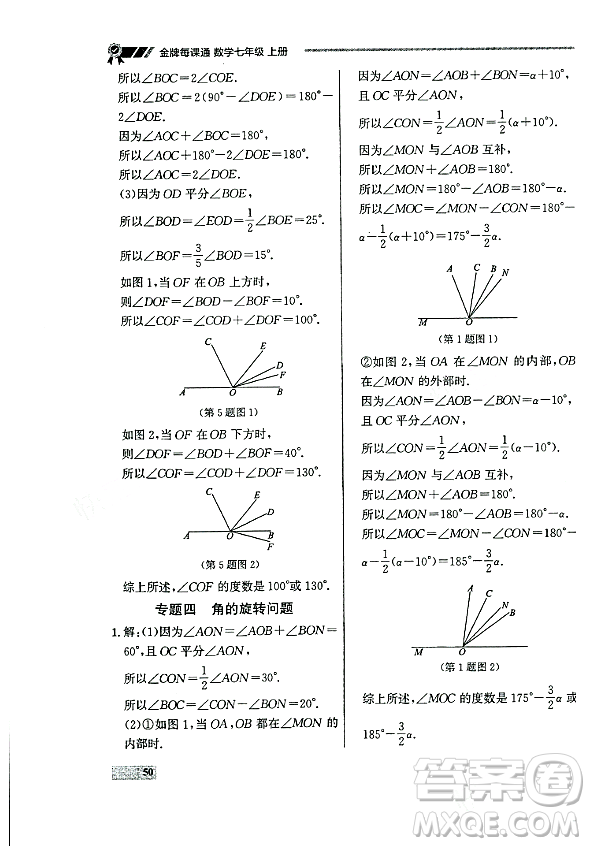 金牌每课通 数学七年级 上册
所以∠BOC=2∠COE.
所以∠BOC=2(90°-∠DOE)=180°-
2∠DOE.
因为∠AOC+∠BOC=180°,
所以∠AOC+180°-2∠DOE=180°.
所以∠AOC=2∠DOE.
(3)因为OD平分∠BOE,
所以∠BOD=∠EOD=1/2∠BOE=25°.
所以∠BOF=3/5∠BOD=15°.
如图1,当OF在OB上方时,
则∠DOF=∠BOD-∠BOF=10°.
所以∠COF=∠COD+∠DOF=100°.
C E D F
A O B
(第5题图1)
如图2,当OF在OB下方时,
则∠DOF=∠BOD+∠BOF=40°.
所以∠COF=∠COD+∠DOF=130°.
C E D
A O B F
(第5题图2)
综上所述,∠COF的度数是100°或130°.
专题四 角的旋转问题
1.解:(1)因为∠AON=∠AOB+∠BON=
60°,且OC平分∠AON,
所以∠CON=1/2∠AON=30°.
所以∠BOC=∠CON-∠BON=20°.
(2)①如图1,当OA,OB都在∠MON的
内部时.
因为∠AON=∠AOB+∠BON=α+10°,
且OC平分∠AON,
所以∠CON=1/2∠AON=1/2(α+10°).
因为∠MON与∠AOB互补,
所以∠MON+∠AOB=180°.
所以∠MON=180°-∠AOB=180°-α.
所以∠MOC=∠MON-∠CON=180°-
α-1/2(α+10°)=175°-3/2α.
A C B N
M O
(第1题图1)
②如图2,当OA在∠MON的内部,OB
在∠MON的外部时.
因为∠AON=∠AOB-∠BON=α-10°,
且OC平分∠AON,
所以∠CON=1/2∠AON=1/2(α-10°).
因为∠MON与∠AOB互补,
所以∠MON+∠AOB=180°.
所以∠MON=180°-∠AOB=180°-α.
所以∠MOC=∠MON-∠CON=180°-
α-1/2(α-10°)=185°-3/2α.
A C N B
M O
(第1题图2)
综上所述,∠MOC的度数是175°-3/2α或
185°-3/2α.
50
答案圈
MXQE.COM